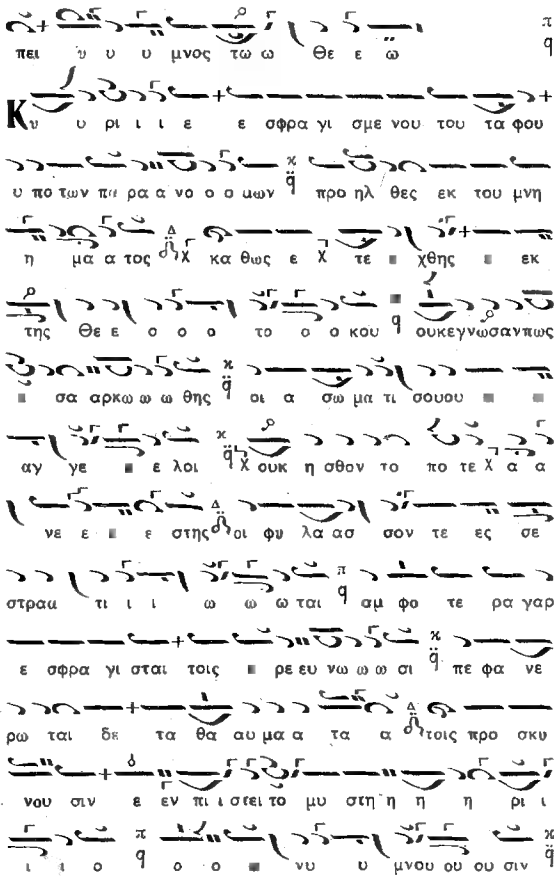 πει υ υ υ μνος τω ω θε ε ω π q
Κυ υ ρι ι ι ε ε σφρα γι σμε νου του τα φου
υ πο των πα ρα α νο ο ο μων κ q προ ηλ θες εκ του μνη
η μα α τος Δ χ κα θως ε χ τε χθης εκ
της Θε ε ο ο ο το ο ο κου q ουκεγνωσανπως
σα αρκω ω ω θης κ q οι α σω μα τι σουου
αγ γε ε λοι κ q χ ουκ η σθον το πο τε χ α α
νε ε ε στης Δ οι φυ λα ασ σον τε ες σε
στραω τι ι ι ω ω ω ται π q αμ φο τε ρα γαρ
ε σφρα γι σται τοις ρε ευ νω ω ω σι κ q πε φα νε
ρω ται δε τα θα αυ μα α τα α Δ τοις προ σκυ
νου σιν ε εν πι ι στει το μυ στη η η η ρι ι
ι ι ο π q ο ο νυ υ μνου ου ου σιν κ q